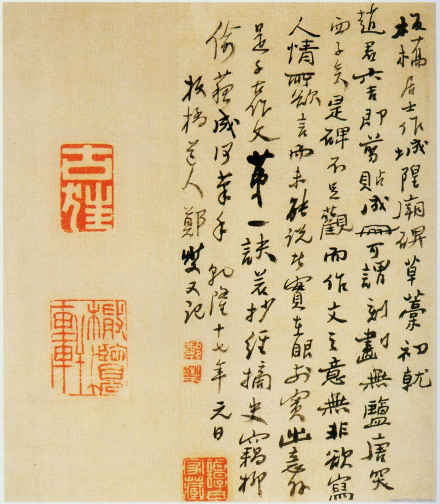 板橋居士作城隍廟碑草藁初就
趙君六吉即剪貼成冊可謂刻畫無鹽唐突
西子矣是碑不足觀而作文之意無非欲寫
人情所欲言而未能說處實在眼前實出意外
是千古作文第一訣若抄經摘史竊柳
偷蘇成何筆手乾隆十七年元日
板橋道人鄭燮又記